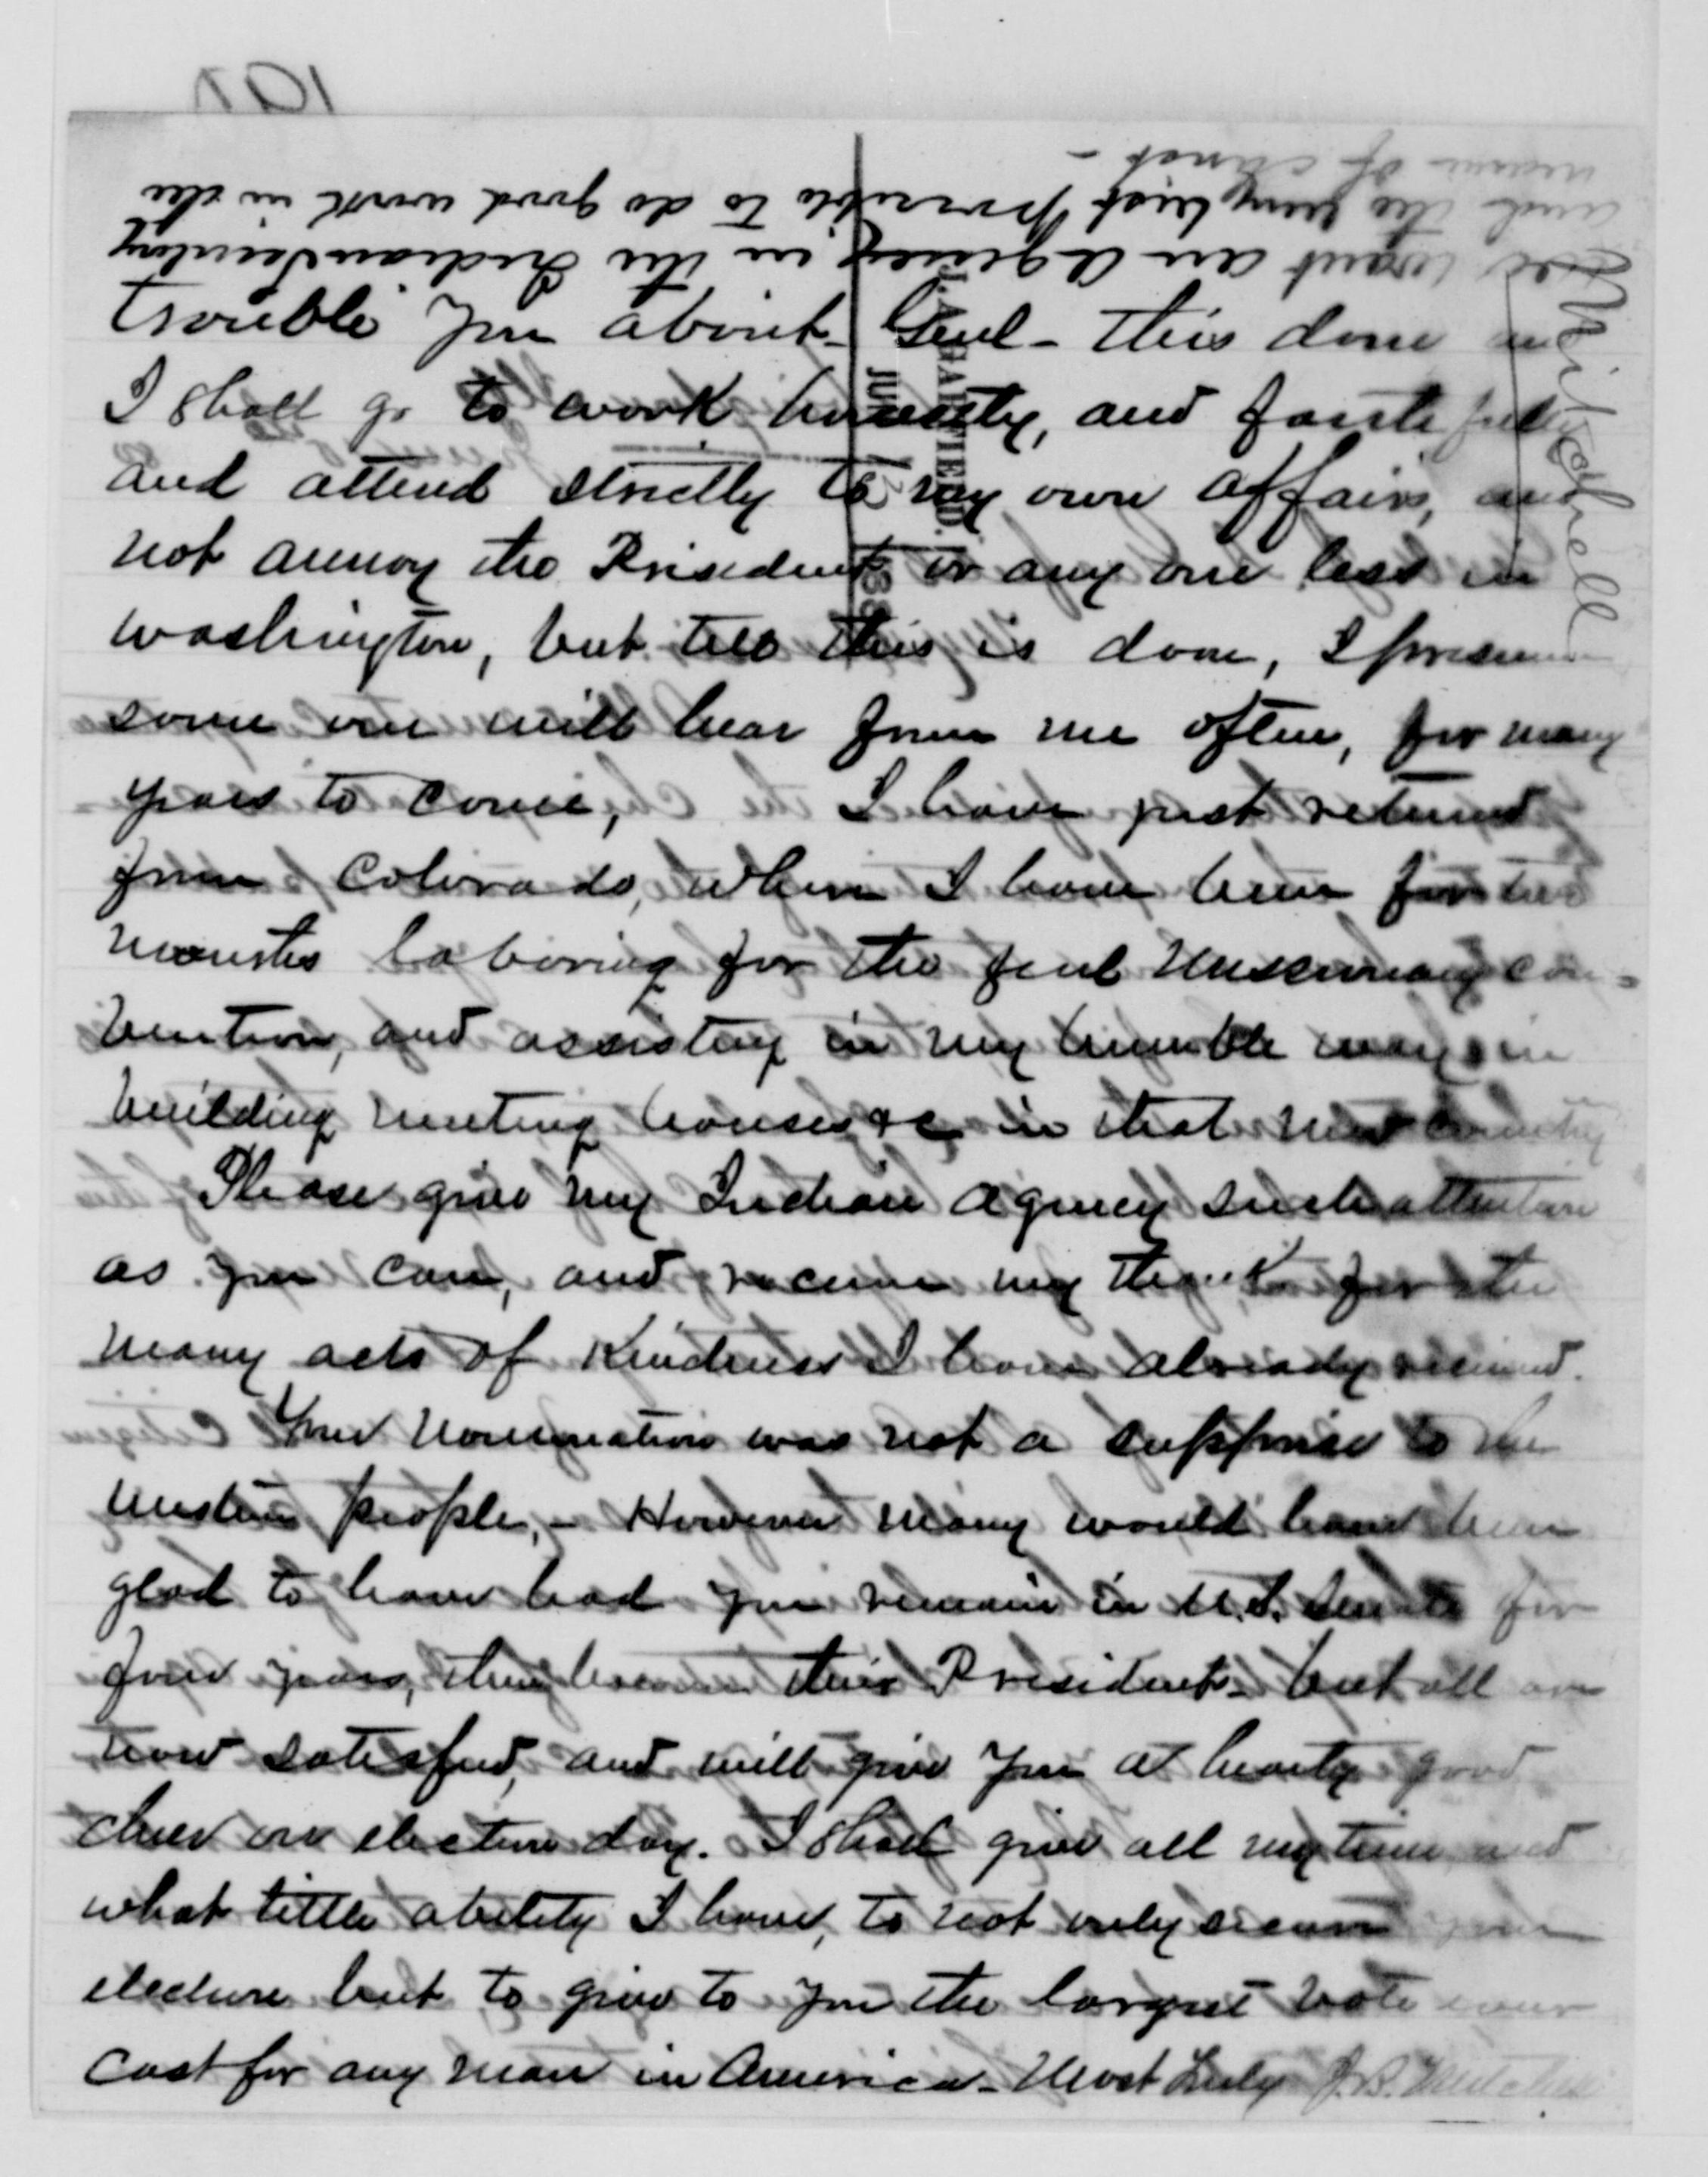 trouble you about - Genl - this done and
I shall go to work honestly, and faithfully
and attend strictly to my own affairs, and
not annoy the President or any one less in
Washington, but till this is done, I presume
some one will hear from me often, for many
years to come, I have just returned
from Colorado, where I have been for two
months laboring for the Genl Missionary Con-
vention, and assisting in my humble way in
building meeting houses &c in that new country
Please give my Indian Agency such attention
as you can, and receive my thanks for the
many acts of Kindness I have already received.
Your nomination was not a supprise to the
western people, - However many would have been
glad to have had you remain in U.S. Senate for
four years, then become their President - but all are
now satisfied, and will give you a hearty good
cheer on election day. I shall give all my time and
what little ability I have, to not only secure your
election but to give to you the largest vote ever
cast for any man in America - Most Truly J.B. Mitchell
I want an Agency in the Indian Territory
and the very best possible to do good work in the
name of Christ -
Mitchell
J. A. GARFIELD.